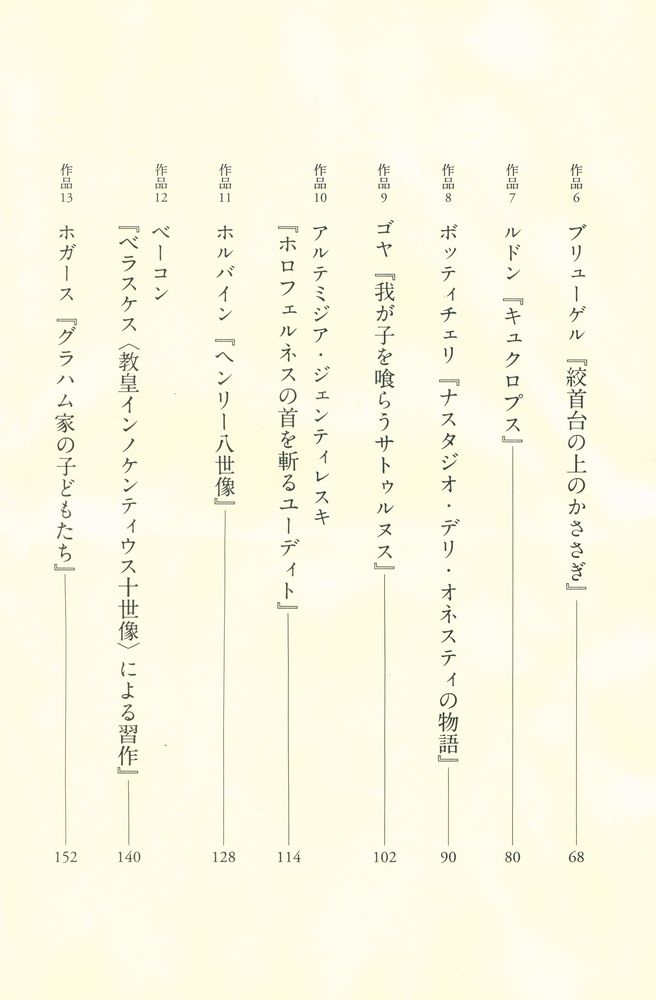 作品6 ブリューゲル『絞首台の上のかささぎ』 68
作品7 ルドン『キュクロプス』 80
作品8 ボッティチェリ『ナスタジオ・デリ・オネスティの物語』 90
作品9 ゴヤ『我が子を喰らうサトゥルヌス』 102
作品10 アルテミジア・ジェンティレスキ
『ホロフェルネスの首を斬るユーディト』 114
作品11 ホルバイン『ヘンリー八世像』 128
作品12 ベーコン
『ベラスケス〈教皇インノケンティウス十世像〉による習作』 140
作品13 ホガース『グラハム家の子どもたち』 152